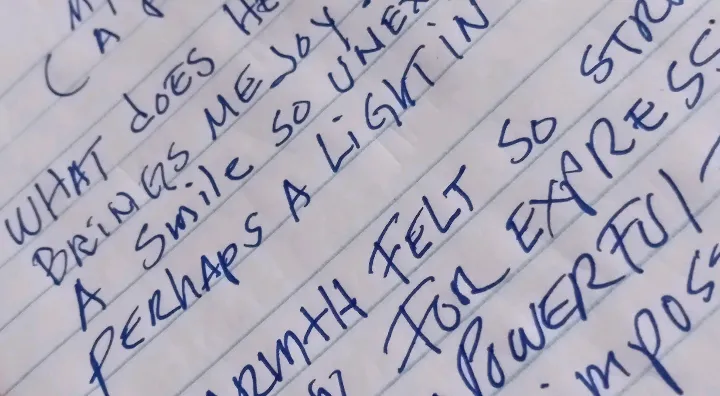 (A
WHAT dOES HE
BRINGS ME JOY
A SmilE SO UNEX
PERHAPS A LiGHT iN
ARMTH FELT SO STR
FOR EXPRESS
POWERFUl
impos